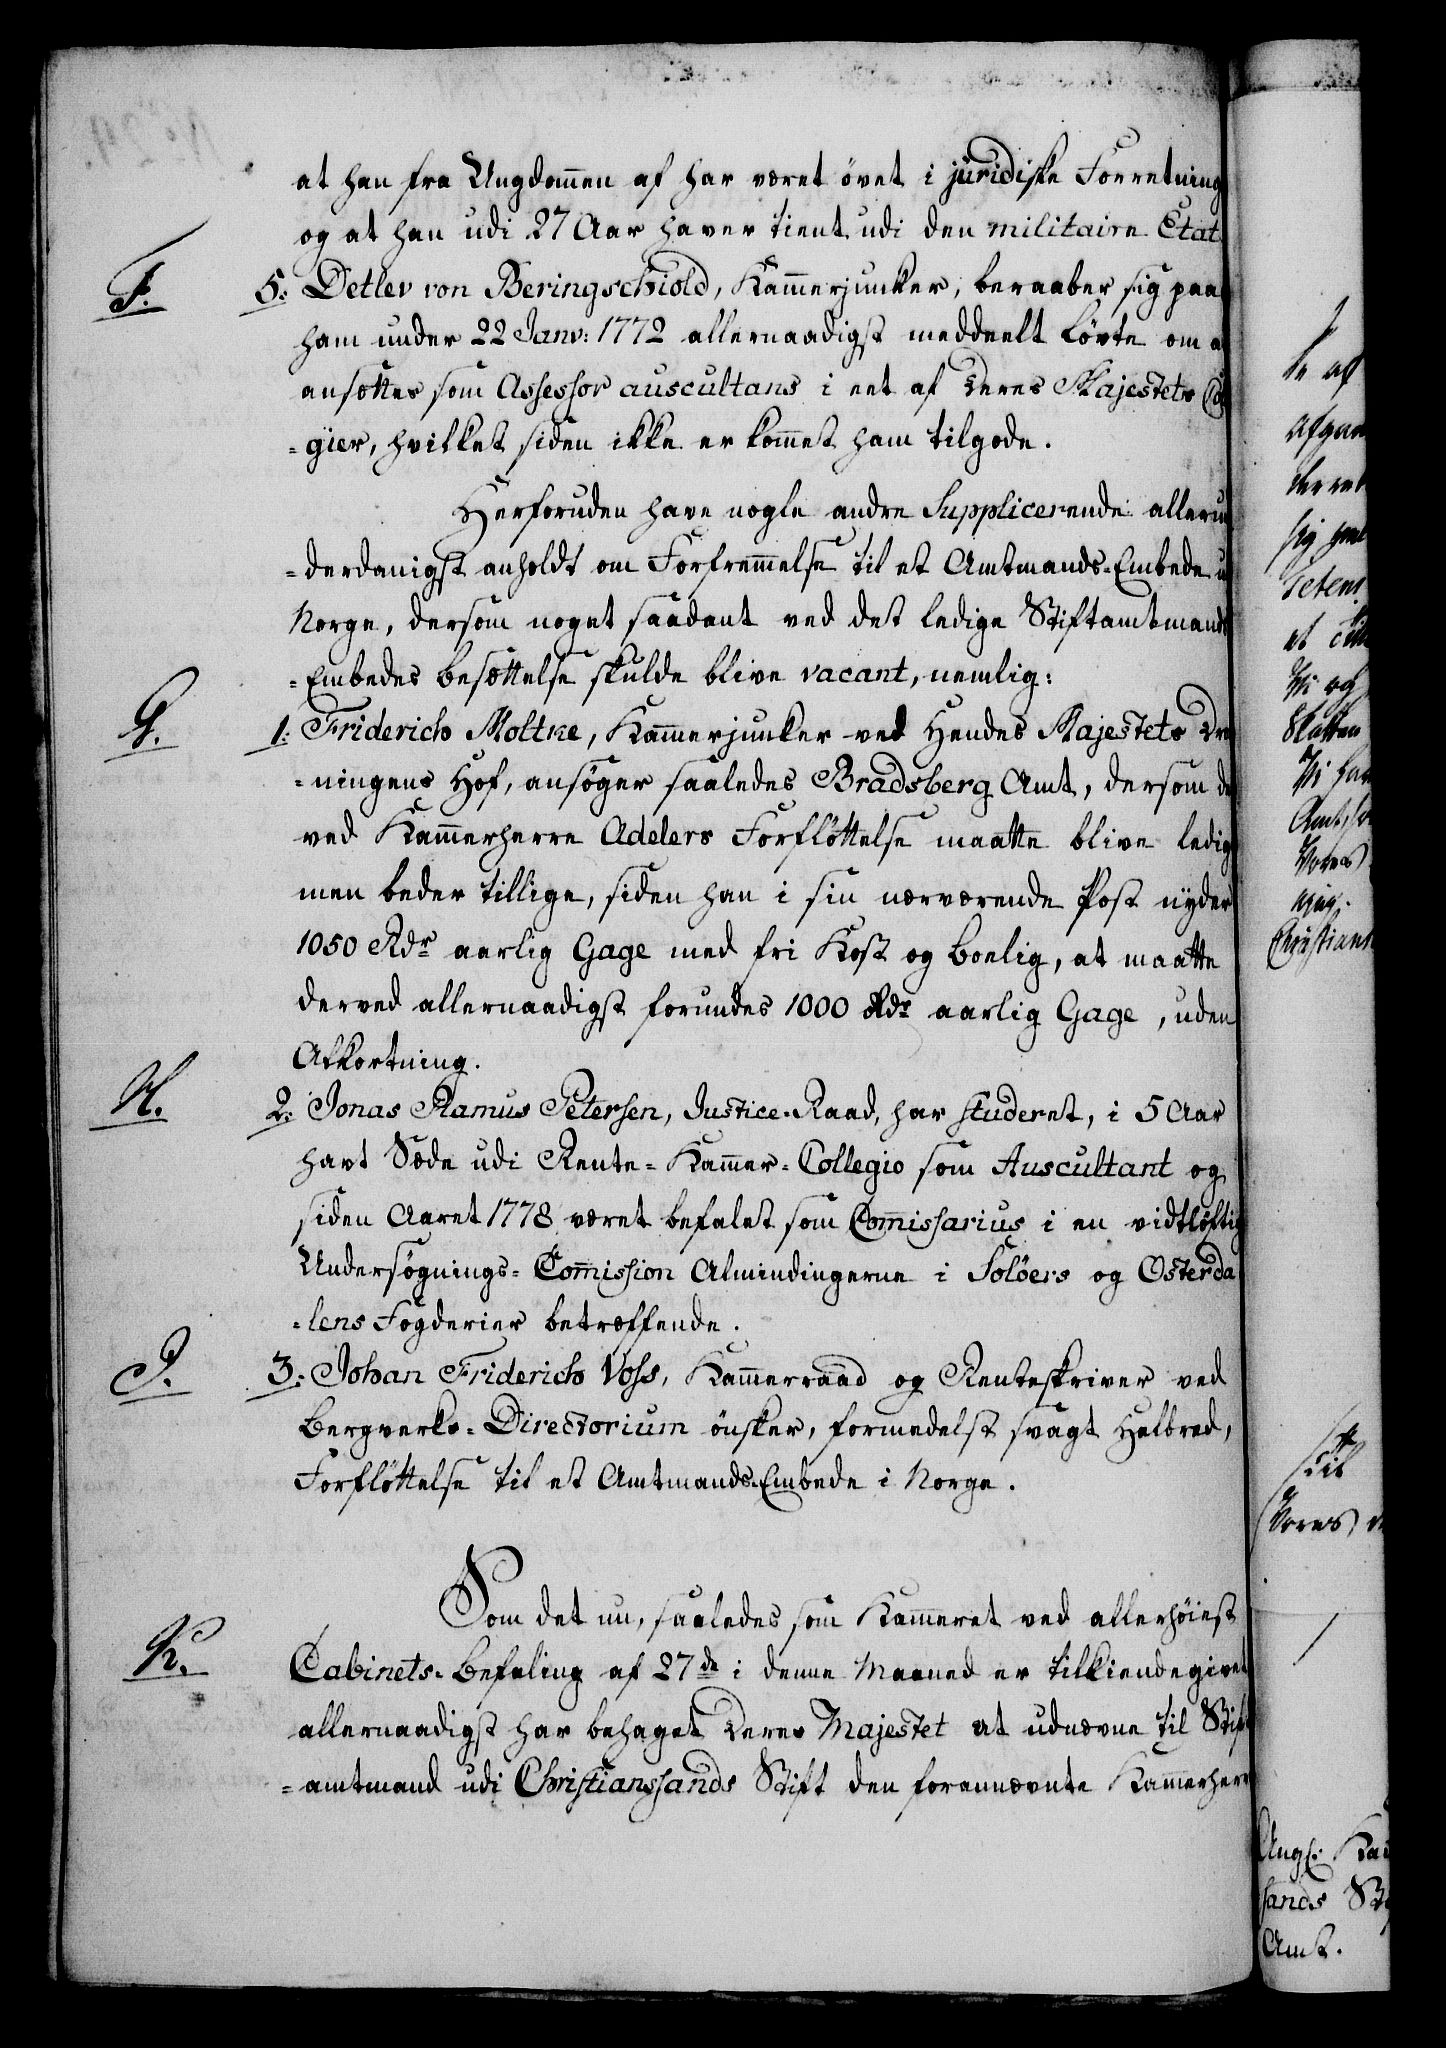 at han fra Ungdommen af har været övet i juridiske Forretning
og at han udi 27 Aar haver tient udi den militaire Etat
F. 5. Detlev von Beringschiold, Kammerjunker, beraaber sig paa
ham under 22 Janv: 1772 allernaadigst meddeelt Løvte om a
ansættes som Assessor auscultans i eet af Deres Majestets Co
-gier, hvilket siden ikke er kommet ham tilgode.
Herforuden have nogle andre Supplicerende allerun
-derdanigst anholdt om Forfremmelse til et Amtmands-Embede u
Norge, dersom noget saadant ved det ledige Stiftamtmands
-Embedes besættelse skulde blive vacant, nemlig:
G. 1. Friderich Moltke, Kammerjunker ved Hendes Majestets Dro
-ningens Hof, ansøger saaledes Bradsberg Amt, dersom de
ved Kammerherre Adelers Forflöttelse maatte blive ledig
men beder tillige, siden han i sin nærværende Post nyder
1050 Rdr aarlig Gage med fri Kost og boelig, at maatte
derved allernaadigst forundes 1000 Rdr aarlig Gage, uden
Afkortning.
H. 2. Jonas Ramus Petersen, Justice-Raad, har studeret, i 5 Aar
havt Sæde udi Rente-Kammer-Collegio som Auscultant og
siden Aaret 1778 været befalet som Commissarius i en vidtløftig
Undersøgnings-Commission Almindingerne i Solöers og Østerda
-lens Fogderier betræffende.
J. 3. Johan Friderich Voss, Kammerraad og Renteskriver ved
Bergverks-Directorium ønsker, formedelst svagt Helbred,
Forflöttelse til et Amtmands-Embede i Norge.
Som det nu, saaledes som Kammeret ved allerhöiest
K. Cabinets-Befaling af 27de i denne Maaned er tilkiendegivet
allernaadigst har behaget Deres Majestet at udnævne til Stift
-amtmand udi Christianssands Stift den forannævnte Kammerherr